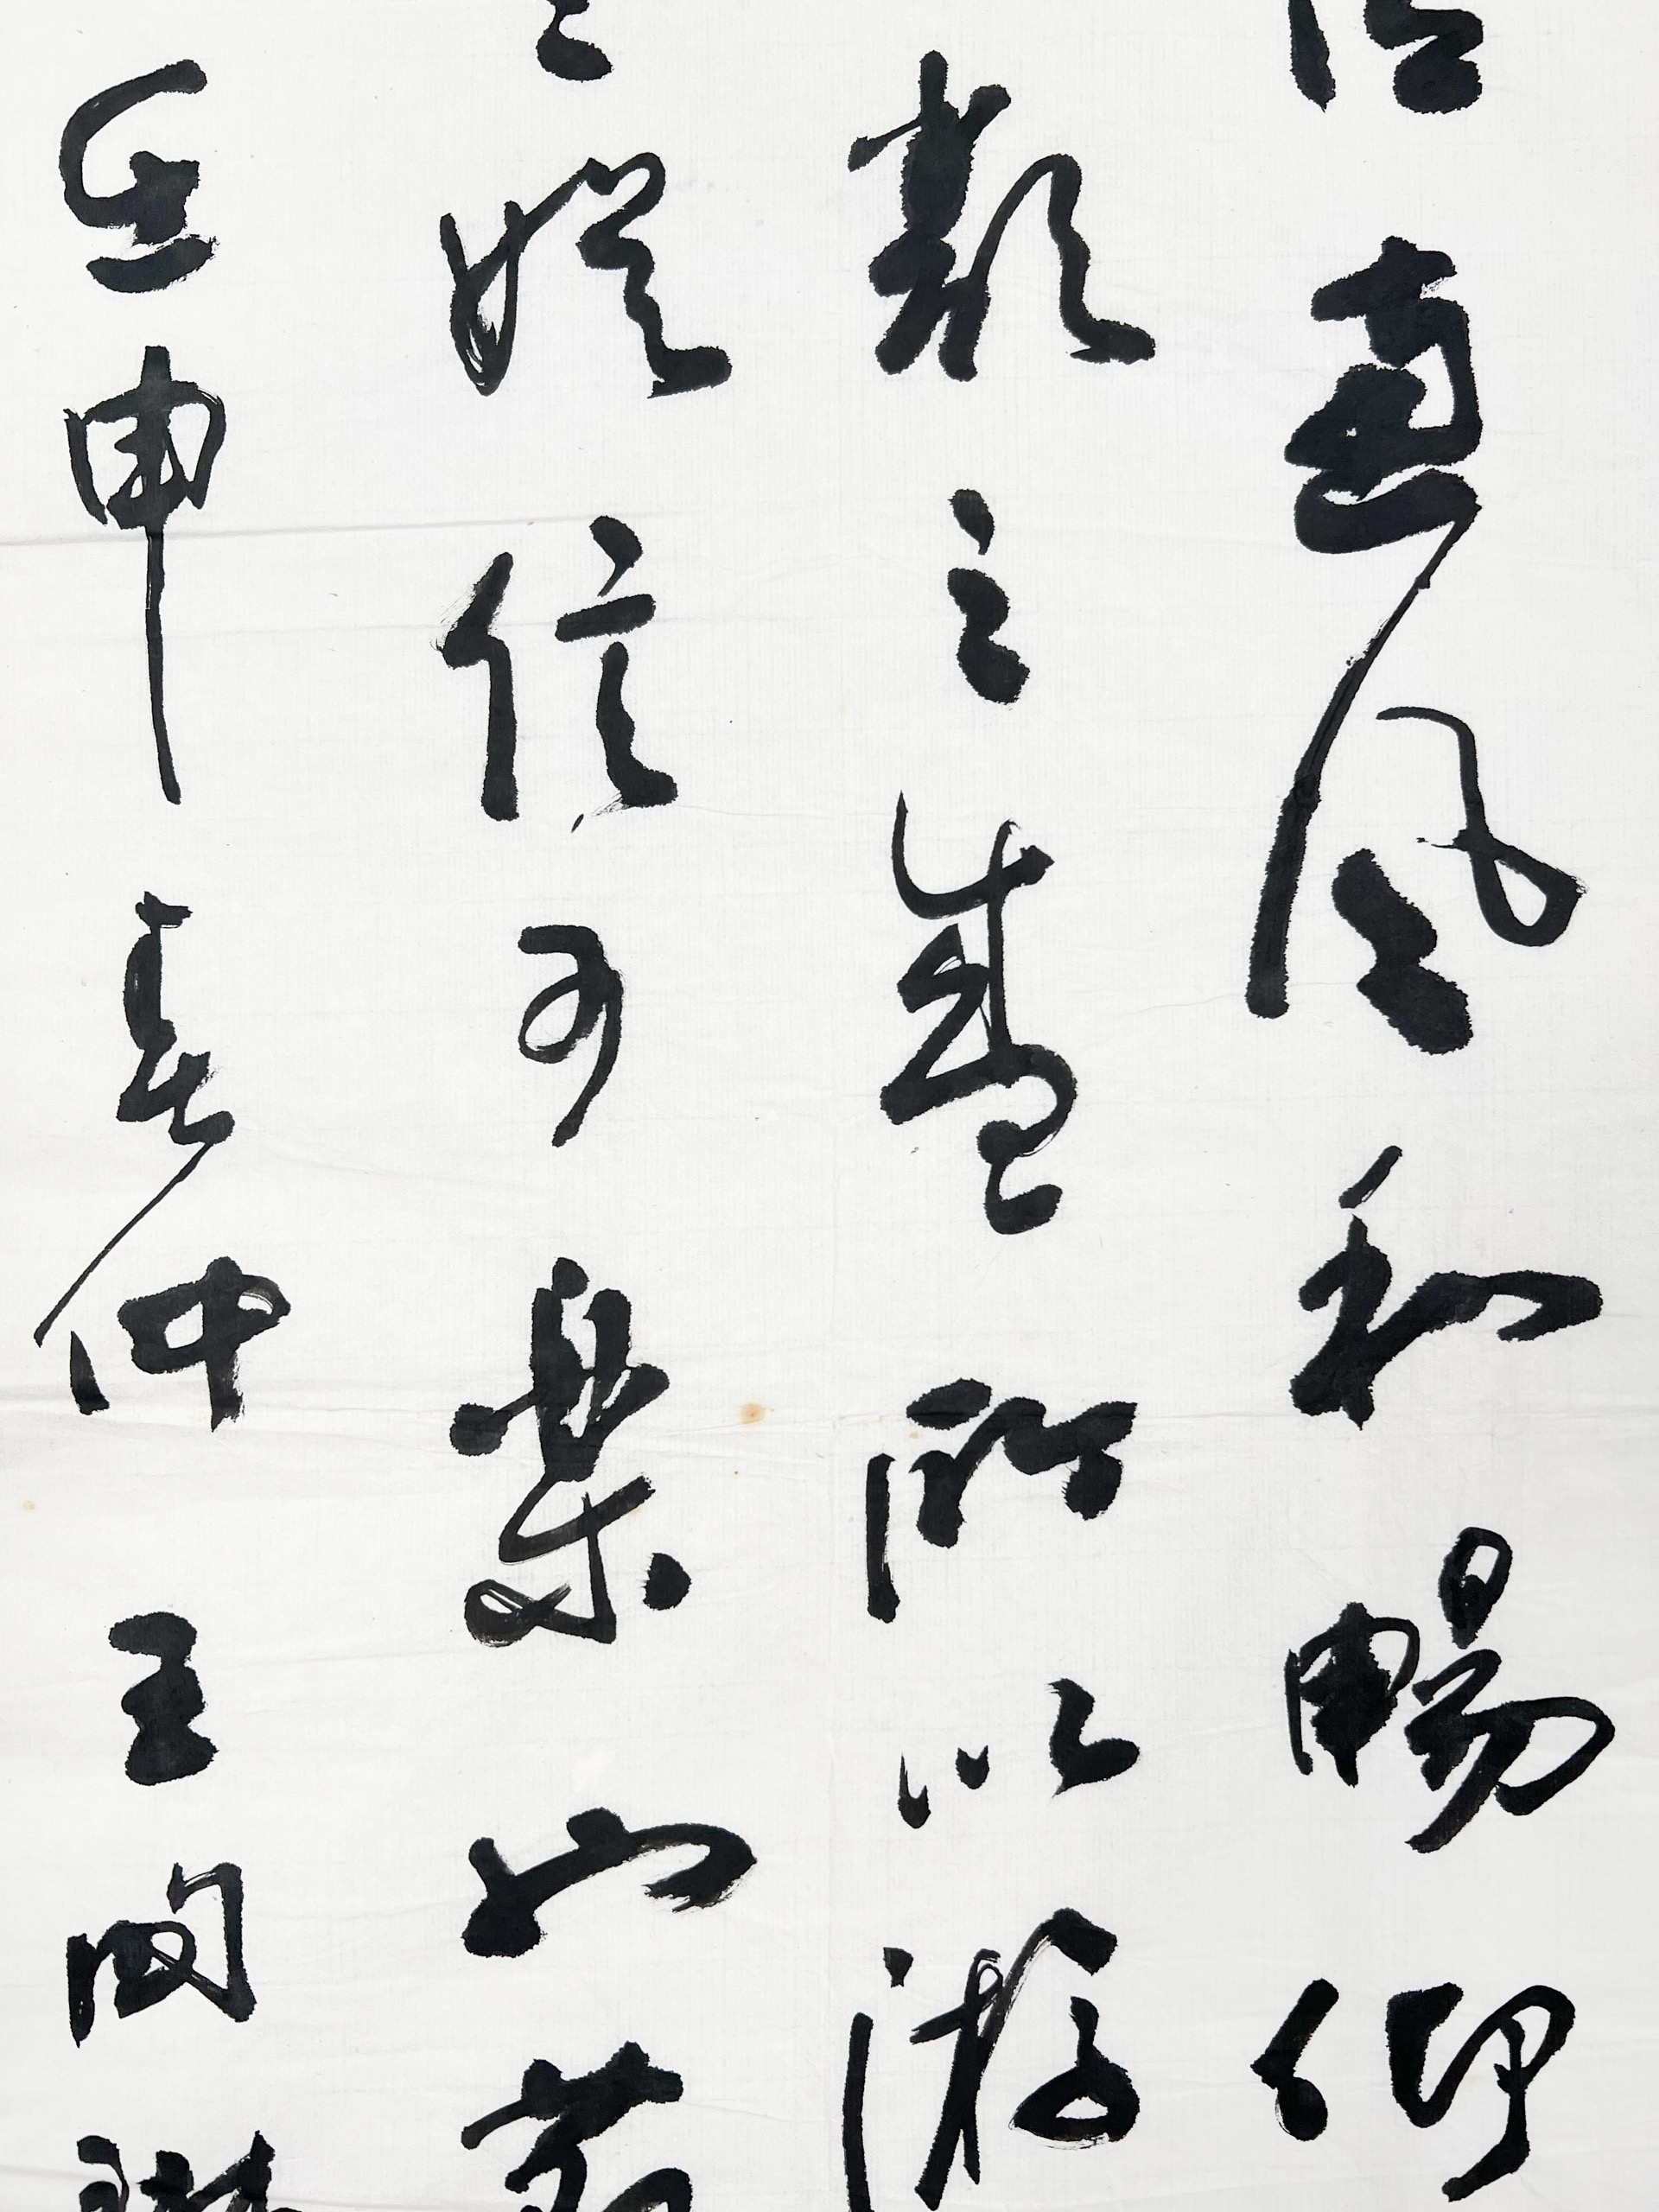 惠風和暢仰
類之盛所以游
娛信可樂也
壬申春仲 王同